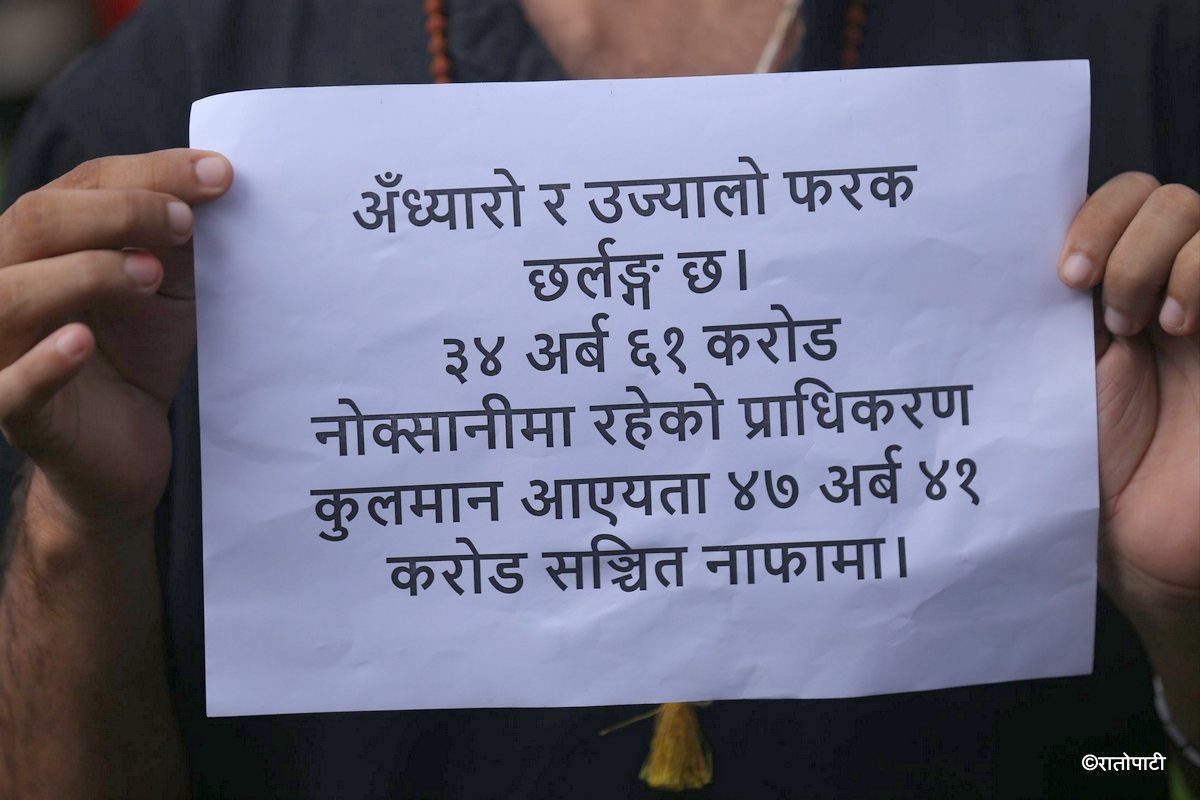 अँध्यारो र उज्यालो फरक
छर्लङ्ग छ।
३४ अर्ब ६१ करोड
नोक्सानीमा रहेको प्राधिकरण
कुलमान आएयता ४७ अर्ब ४१
करोड सञ्चित नाफामा।
©रातोपाटी